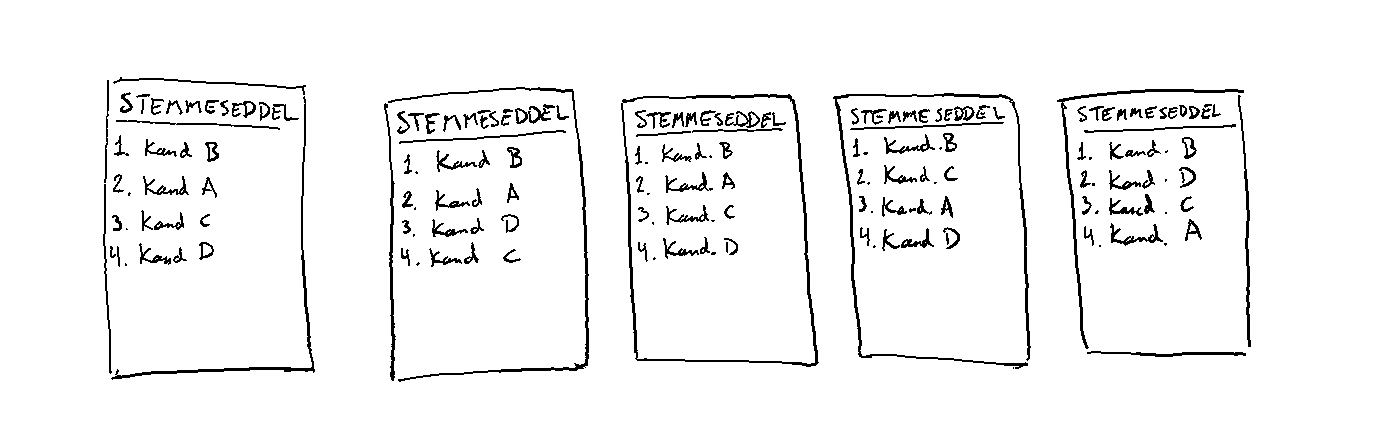 STEMMESEDDEL
1. Kand B
2. Kand A
3. Kand C
4. Kand D
STEMMESEDDEL
1. Kand B
2. Kand A
3. Kand D
4. Kand C
STEMMESEDDEL
1. Kand. B
2. Kand. A
3. Kand. C
4. Kand. D
STEMMESEDDEL
1. Kand. B
2. Kand. C
3. Kand. A
4. Kand D
STEMMESEDDEL
1. Kand. B
2. Kand. D
3. Kand. C
4. Kand. A